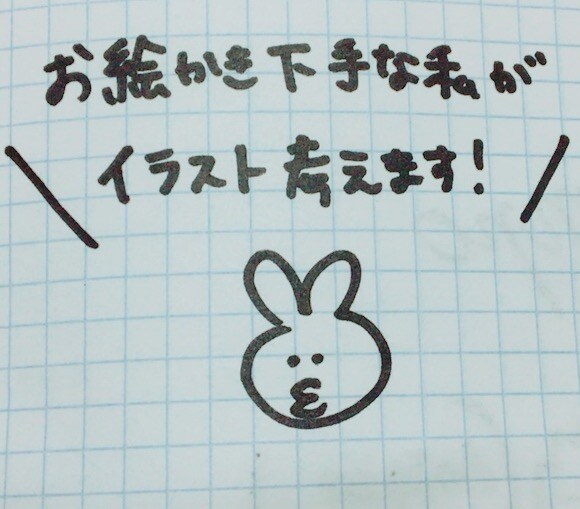 お絵かき下手な私が
イラスト考えます!